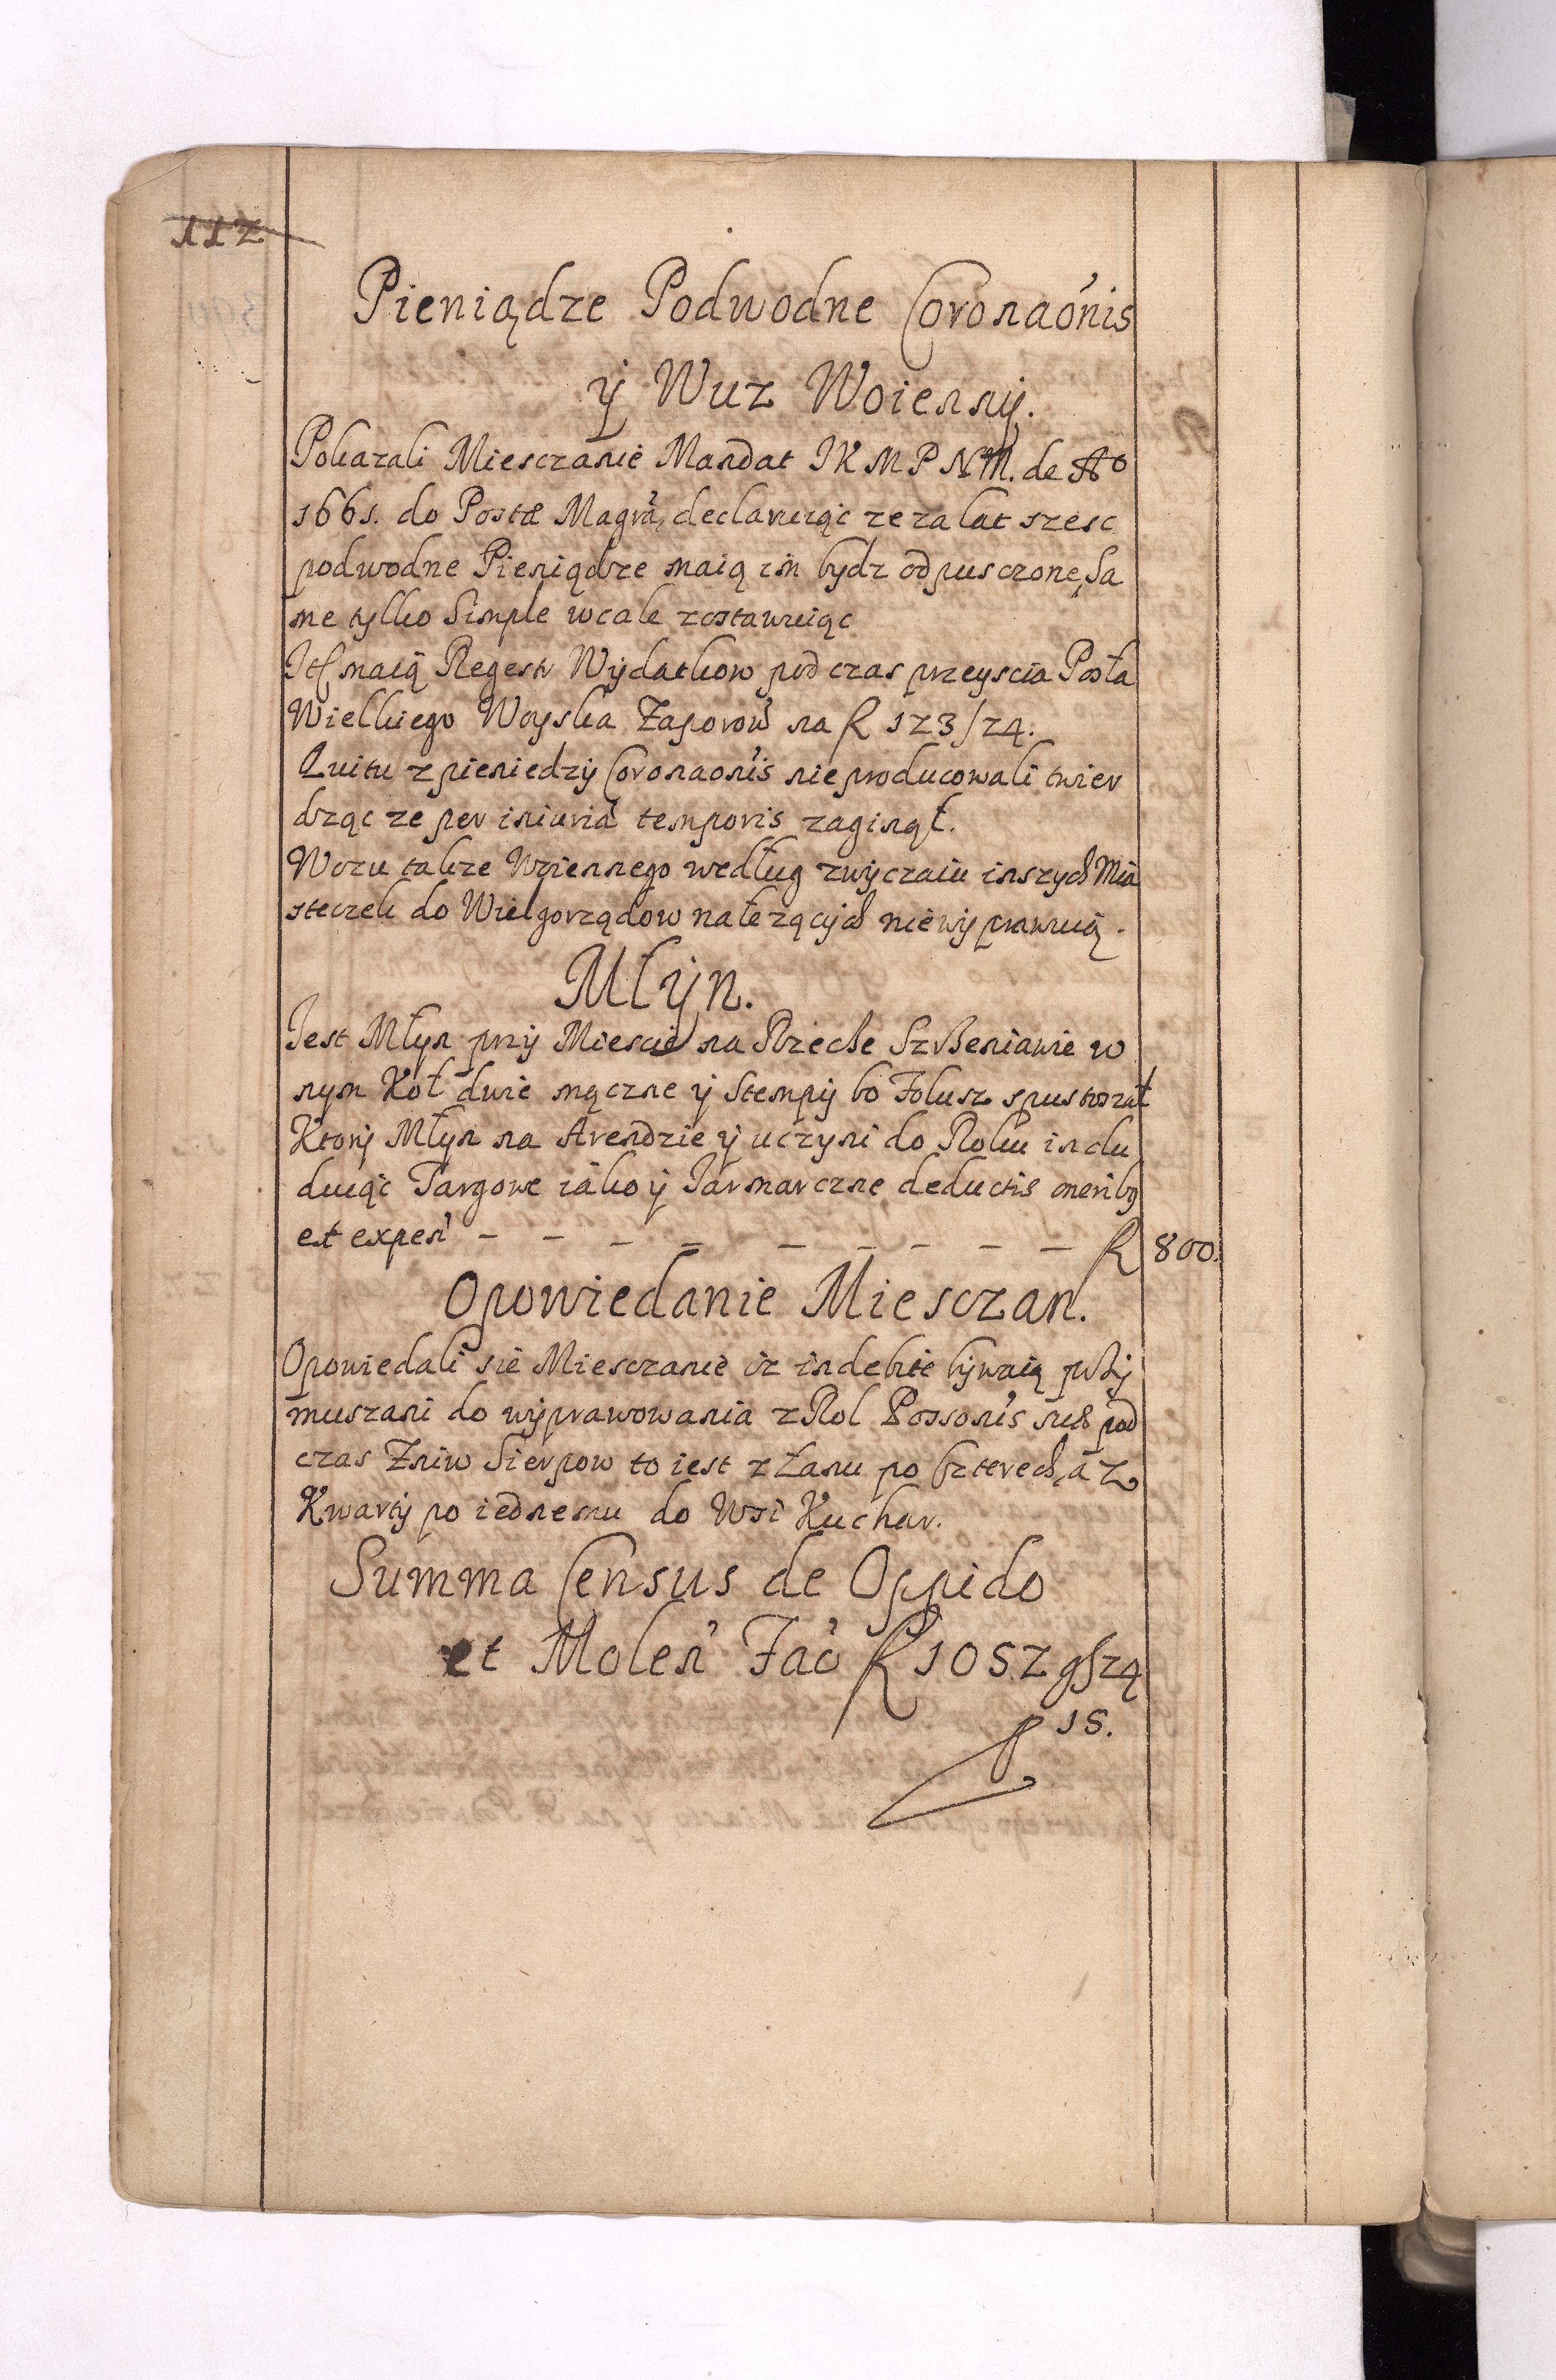 112
Pieniądze Podwodne Coronaónis
ÿ Wuz Woiennÿ.
Pokazali Miesczanie Mandat JKMPNM. de Aº
1661. do Posta Magrã, declaruiąc ze za lat szesc
podwodne Pieniądze maią im bydz odpusczone, Sa
me tylko Simple wcale zostawuiąc
Itẽ maią Regestr Wydatkow podczas przeyscia Posła
Wielkiego Woyska Zaporow̉ na R 123/24.
Quitu z pieniedzÿ Coronaonis nie producowali twier
dząc ze per iniuriã temporis zaginął.
Wozu takze Woiennego według zwÿczaiu inszych Mia
steczek do Wielgorządow należącÿch nie wÿprawuią.
Młÿn.
Jest Młyn przÿ Miescie na Rzecze Szreniawie w
nym Koł dwie mączne ÿ Stempÿ bo Folusz spustoszał
Ktorÿ Młyn na Arendzie ÿ uczyni do Roku inclu
duiąc Targowe iako ÿ Jarmarczne deductis oneribꝫ
et expeñ — — — — — — — — — R 800.
Opowiedanie Miesczan.
Opowiedali sie Miesczanie iz indebite bÿwaią przÿ
muszani do wÿprawowania z Rol Possonis such pod
czas Zniw Sierpow to iest z Łanu po czterech, a z
Kwartÿ po iednemu do Wsi Kuchar.
Summa Census de Oppido
et Moleñ Fac̉ R 1052 gr 24
15.